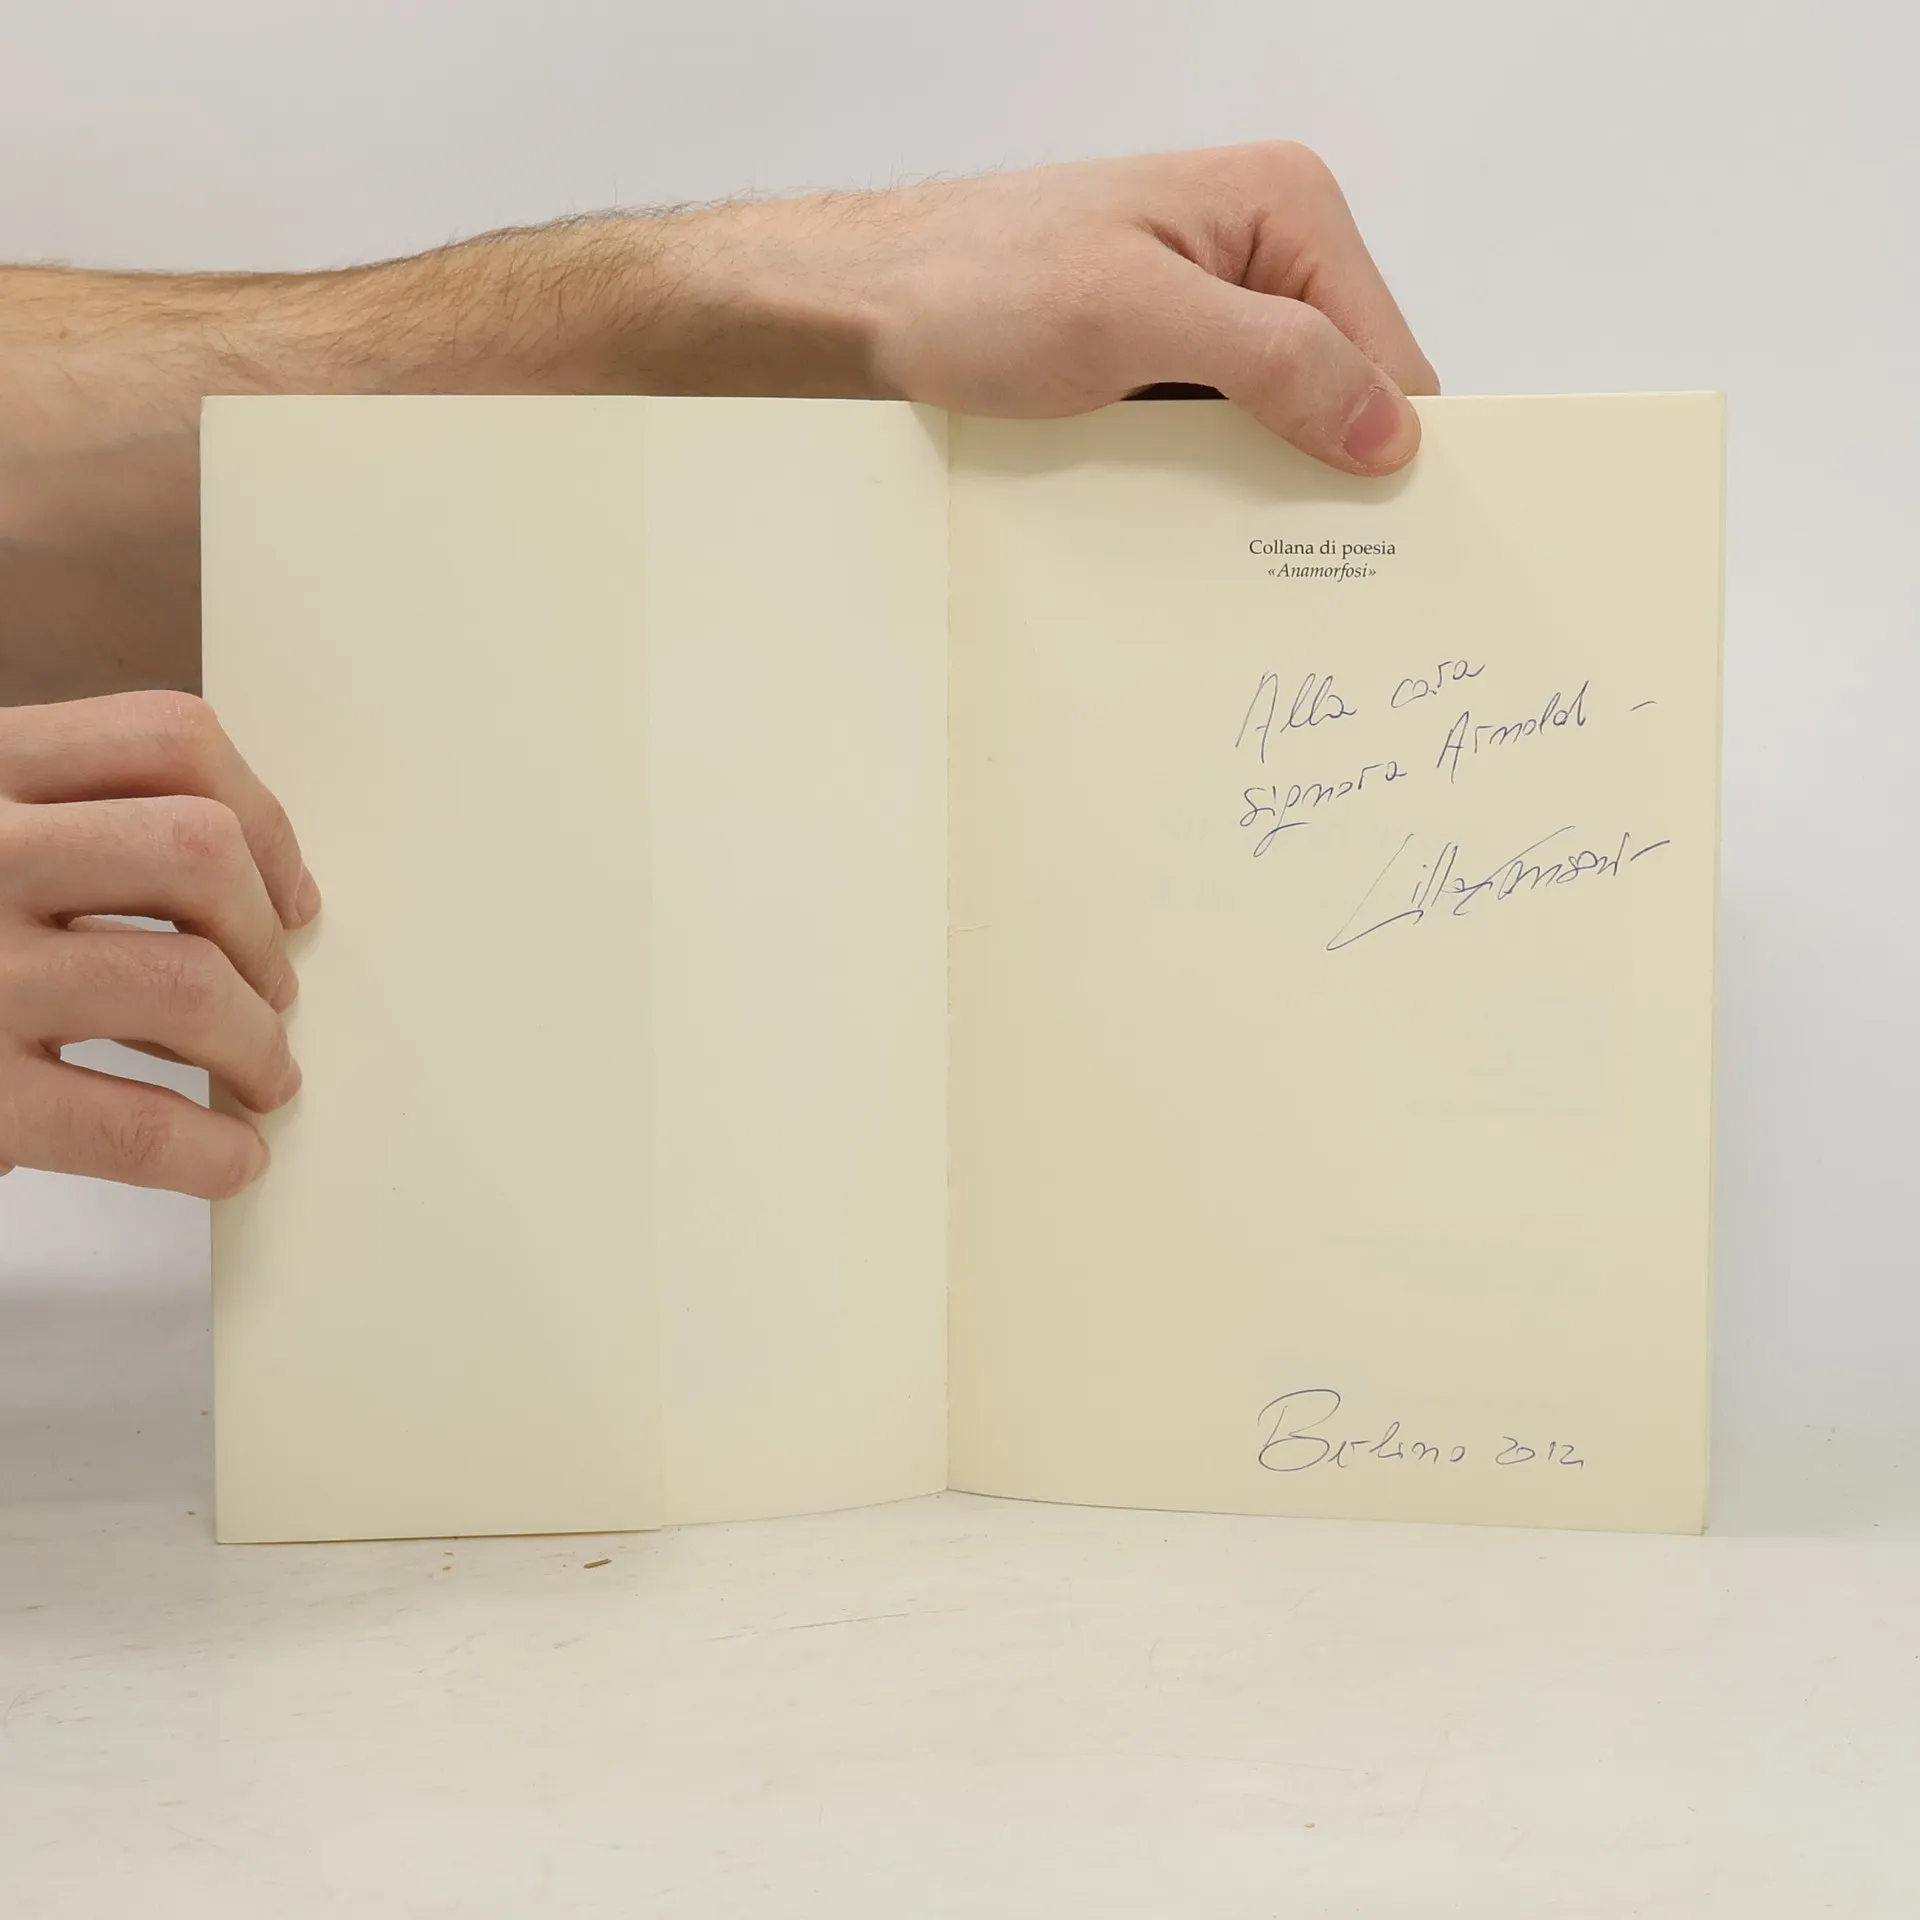 Collana di poesia
«Anamorfosi»
Alla cara
signora Arnold -
Lilla Consoni
Berlino 2012